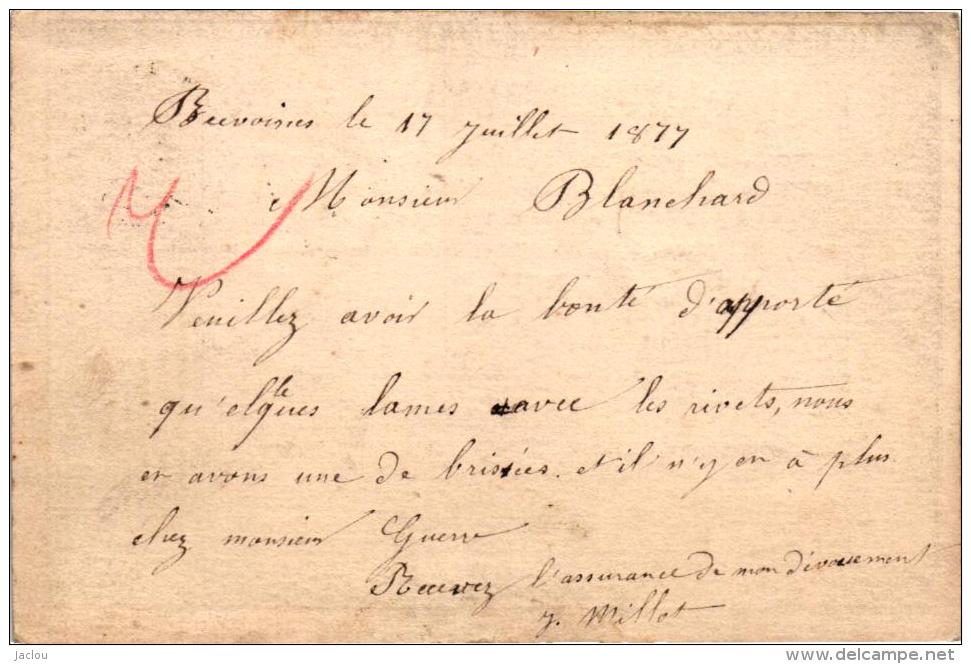 Beevoines le 17 Juillet 1877
Monsieur Blanchard
Veuillez avoir la bonté d'apporté
qu'elques lames avec les rivets, nous
en avons une de brisées. et il n'y en à plus
chez monsieur Guerre
Recevez l'assurance de mon dévouement
J. Millot
jaclou
www.delcampe.net